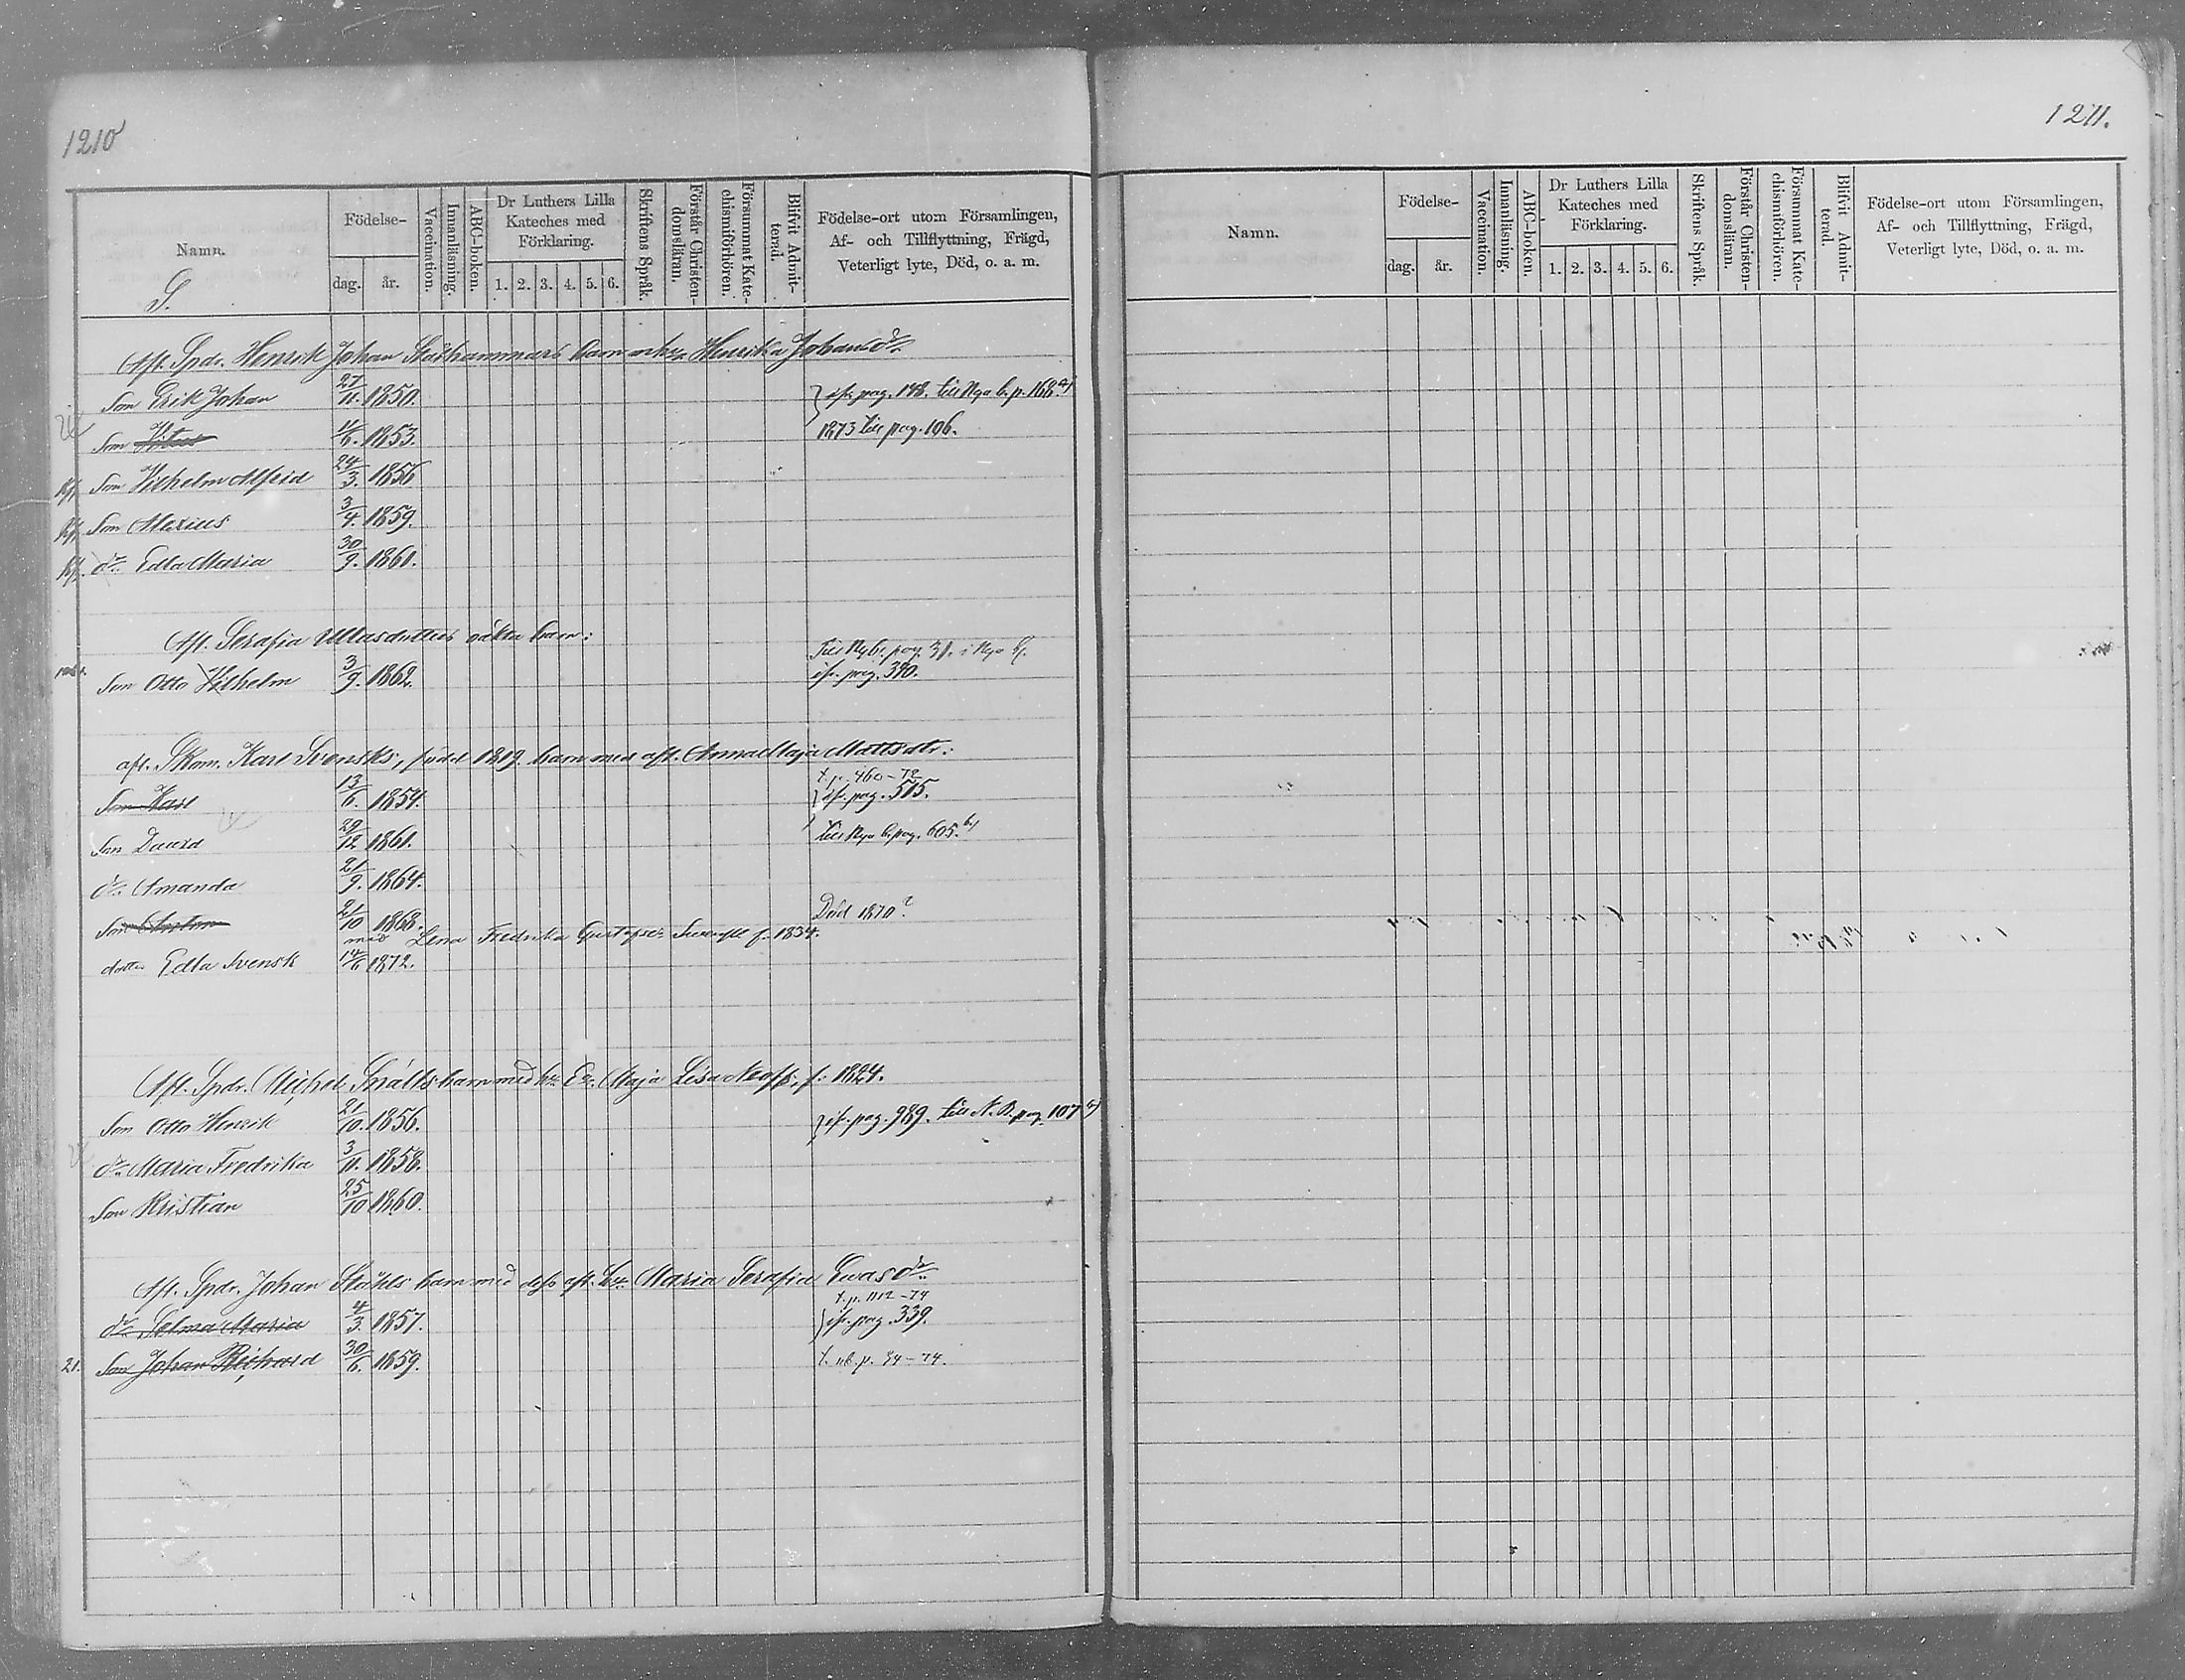 1210
Namn.
Födelse-
dag.
år.
Vaccination.
Innanläsning.
ABC-boken.
Dr Luthers Lilla
Kateches med
Förklaring.
1. 2. 3. 4. 5. 6.
Skriftens Språk.
Förstår Christen-
domsläran.
Försummat Kate-
chismiförhören.
Blifvit Admit-
terad.
Födelse-ort utom Församlingen,
Af- och Tillflyttning, Frägd,
Veterligt lyte, Död, o. a. m.
S.
Afl. Spdr. Henrik Johan Stålhammars barn Henrika Johansdr.
Son Erik Johan 27/11. 1850. ifr. pag. 148. till Nya b. p. 168.
Son 1853. 1873 till pag. 106.
Son Vilhelm Alfrid 24/3. 1856
Son Alexius 3/4. 1859.
dr. Edla Maria 30/9. 1861.
Afl. Serafia Ullasdotters oäkta barn:
Till Nyb. pag. 31. i Nya b.
Son Otto Vilhelm 3/9. 1862. ifr. pag. 390.
afl. Skom. Karl Svensks, född 1819. barn med afl. Anna Maja Mattsdtr.:
t. p. 460-72
Son Karl 13/6. 1854. ifr. pag. 515.
Son David 29/12 1861. till Nya b. pag. 605.
dr. Amanda 21/9. 1864.
Son 21/10 1868. Död 1870?
med Lena Fredrika Gustafsdr f. 1834.
dotter Edla Svensk 14/6 1872.
Afl. Spdr. Michel Snälls barn med h. E. Maja Lisa f: 1824.
Son Otto Henrik 21/10. 1856. ifr. pag. 989. till N. B. pag. 107
dr. Maria Fredrika 3/11. 1858.
Son Kristian 25/10 1860.
Afl. Spdr. Johan Ståhls barn med dess afl. h. Maria Serafia Ewasdr
t. p. 1112-74
dr. Selma Maria 4/3. 1857. ifr. pag. 339.
21. Son Johan Richard 30/6. 1859. t. nb. p. 34-74.
1211.
Namn.
Födelse-
dag.
år.
Vaccination.
Innanläsning.
ABC-boken.
Dr Luthers Lilla
Kateches med
Förklaring.
1. 2. 3. 4. 5. 6.
Skriftens Språk.
Förstår Christen-
domsläran.
Försummat Kate-
chismiförhören.
Blifvit Admit-
terad.
Födelse-ort utom Församlingen,
Af- och Tillflyttning, Frägd,
Veterligt lyte, Död, o. a. m.